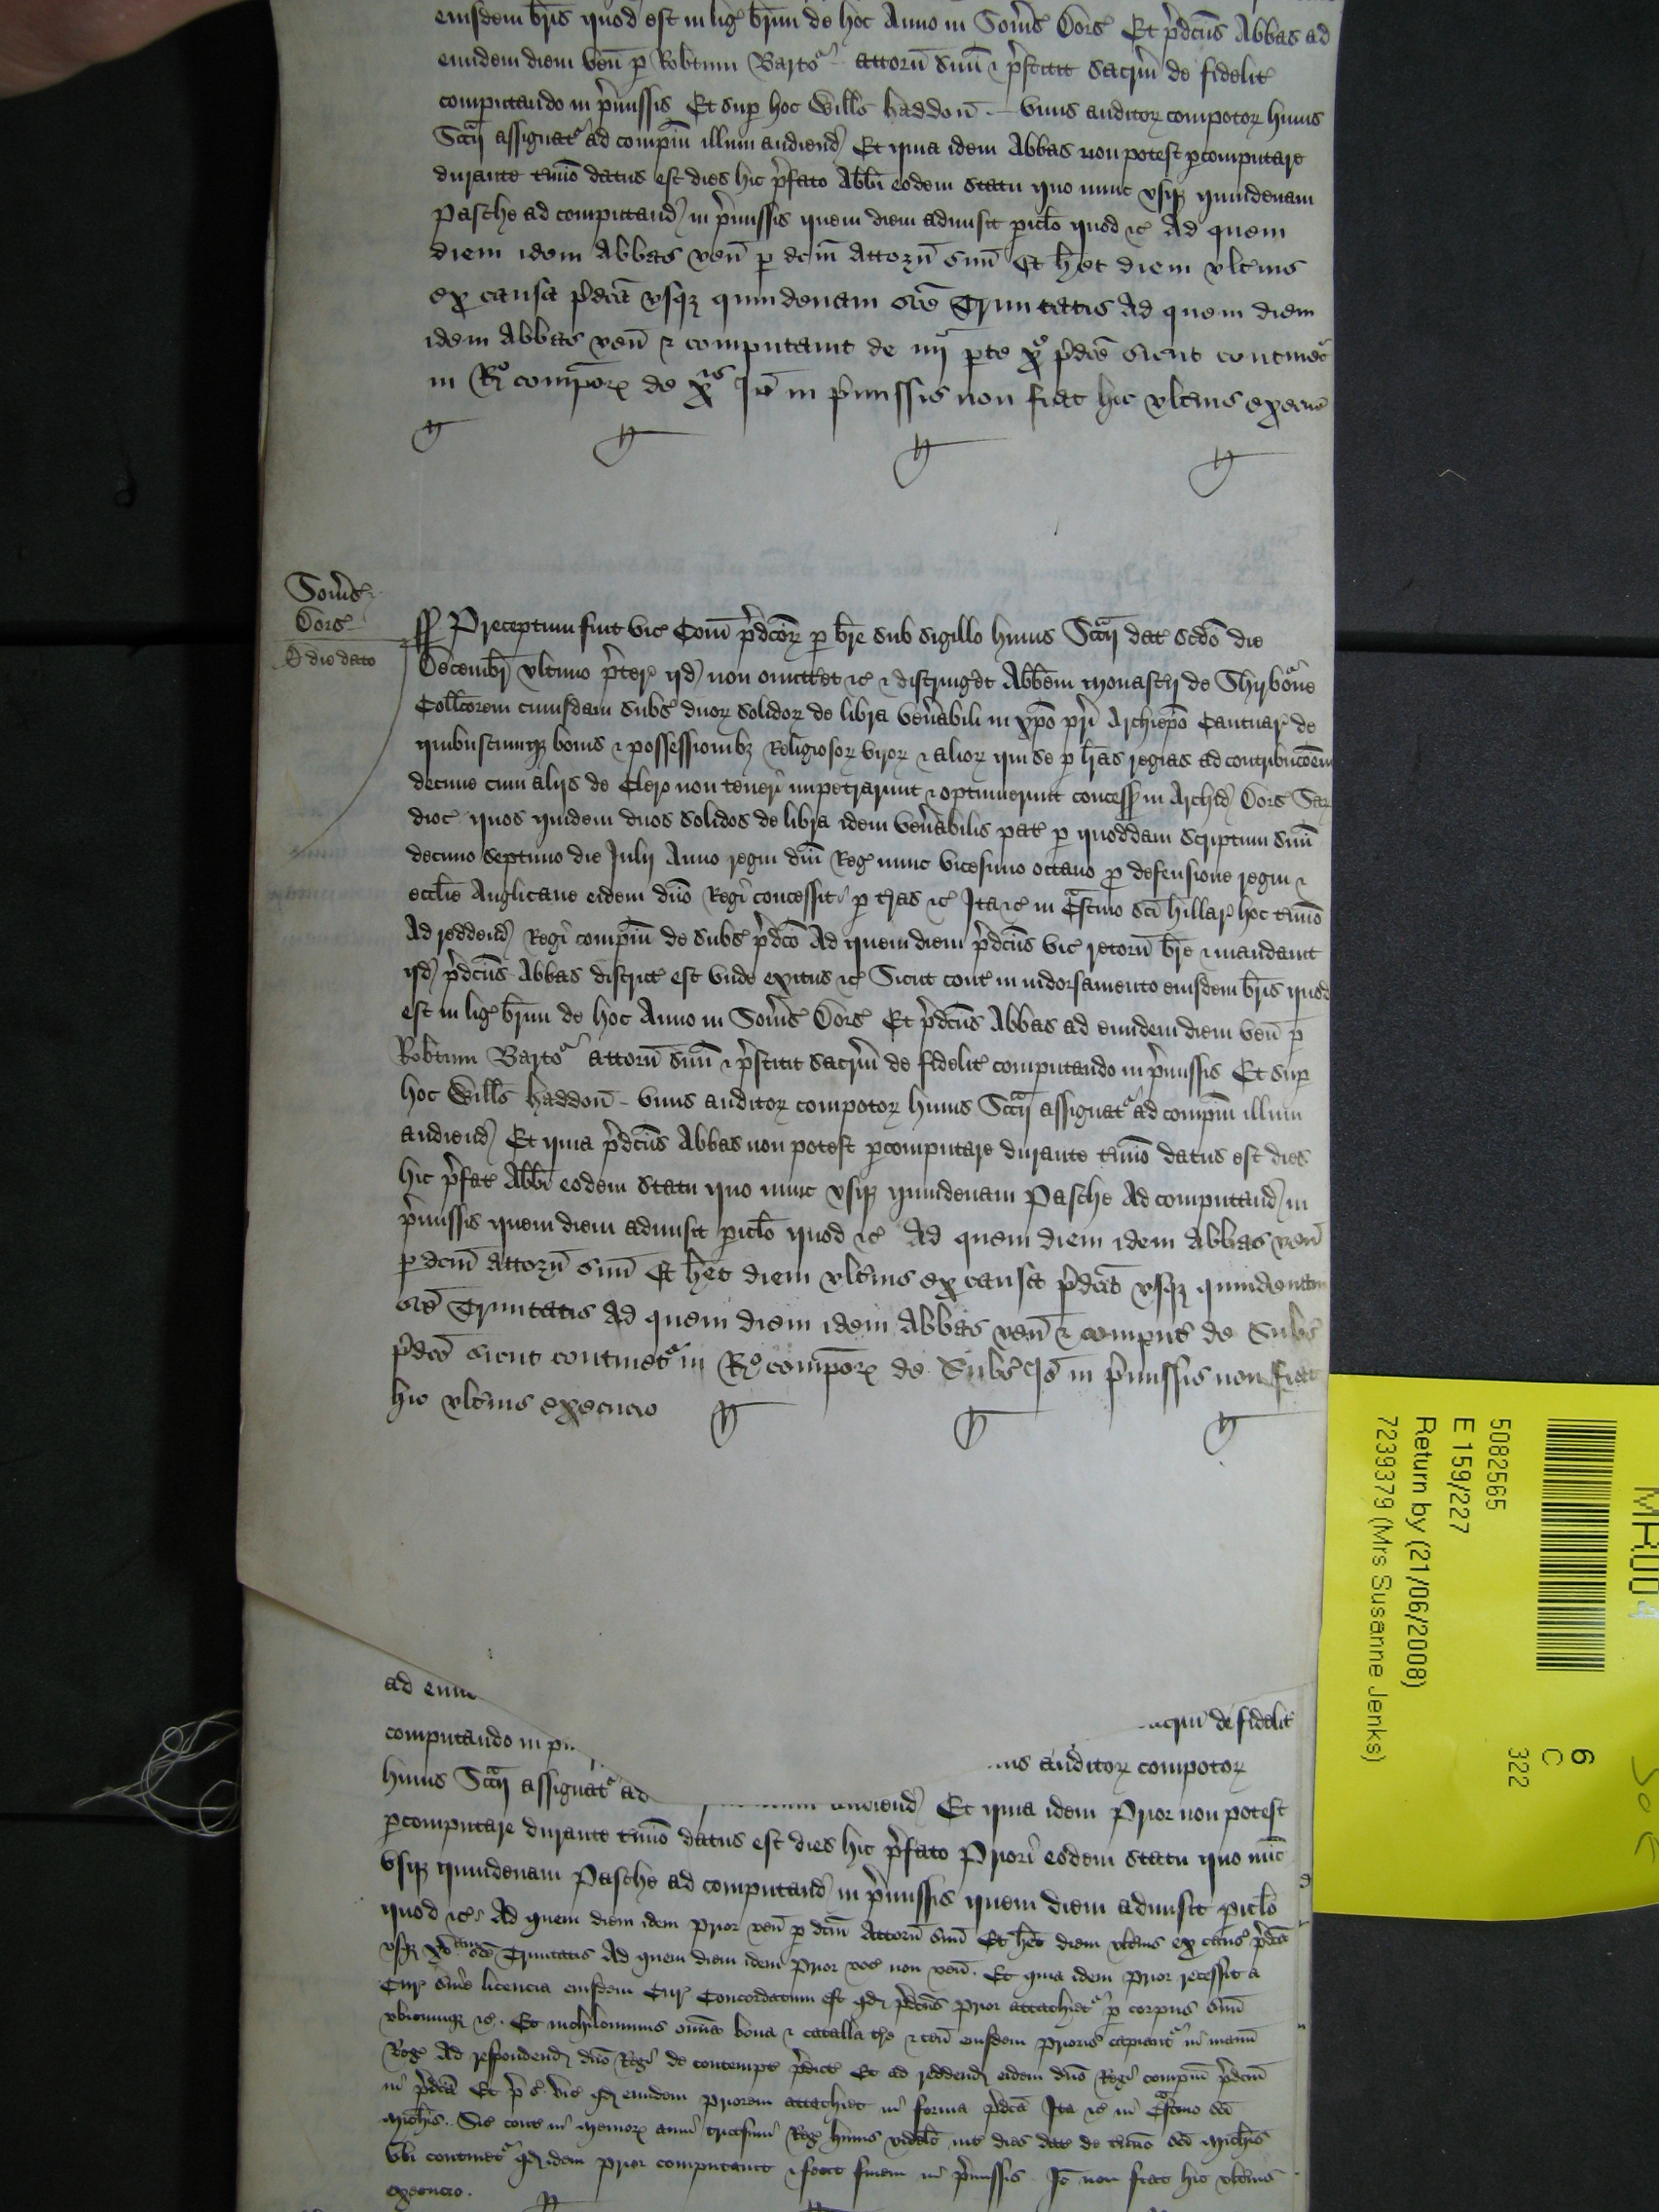 eiusdem br̃is quod est in lig̃ br̃ium de hoc Anno in Som̃s Dors Et p̃dc̃us Abbas ad
eundem diem veñ p Rob̃tum Barto attorñ suũ & p̃stitit sacr̃m de fidelit̃
computando in p̃missis Et sup hoc Will̃s Haddoñ vnus auditoꝝ compotoꝝ huius
Sccãij assignat̃ ad comp̃m illum audiend̃ Et quia idem Abbas non potest p̱computare
durante t̃mio datus est dies hic p̃fato Abb̃i eodem statu quo nunc vsqꝫ quindenam
Pasche ad computand̃ in p̃missis quem diem admisit p̱ic̃lo quod &c̃ Ad quem
diem idem Abbas veñ p dc̃m Attorñ suũ Et h̃et diem vlt̃ius
ex causa p̃dc̃a vsqꝫ quindenam sc̃e Trinitatis Ad quem diem
idem Abbas veñ & computauit de iiij p̱te xͦ p̃dc̃e sicut continet̃
in Rͦ compoꝝ de x̃ Iõ in p̃missis non fiat hic vlt̃ius execuc̃
Som̃s
Dors
D die dato
Preceptum fuit vic̃ Com̃ p̃dc̃oꝝ p br̃e sub sigillo huius Sccãij dat̃ sc̃do die
Decembr̃ vltimo p̃ter̃ qd̃ non omittet &c̃ & distring̃et Abb̃em monast̃ij de Shirborñe
Coll̃torem cuiusdam subs̃ duoꝝ solidoꝝ de libra ven̾abili in xp̃o pr̃i Archiep̃o Cantuar̃ de
quibuscumqꝫ bonis & possessionibꝫ Religiosoꝝ viroꝝ & alioꝝ qui se p l̃ras regias ad contribuc̃oem
decime cum alijs de Clero non teneri impetrarunt & optinuerunt concess̃ in Archid̃ Dors Sar̃
dioc̃ quos quidem duos solidos de libra idem ven̾abilis pat̃ p quoddam scriptum suũ
decimo septimo die Julij Anno regni dñi Reg̃ nunc vicesimo octauo p̱ defensione regni &
eccl̃ie Anglicane eidem dño Regi concessit p t̃ras &c̃ Ita &c̃ in Cr̃astino sc̃i Hillar̃ hoc t̃mio
Ad reddend̃ Regi comp̃m de subs̃ p̃dc̃o Ad quem diem p̃dc̃us vic̃ retorñ br̃e & mandauit
qd̃ p̃dc̃us Abbas district̃ est vnde exitus &c̃ Sicut cont̃ in indorsamento eiusdem br̃is quod
est in lig̃ br̃ium de hoc Anno in Som̃s Dors Et p̃dc̃us Abbas ad eundem diem veñ p
Rob̃tum Barto attorñ suũ & p̃stitit sacr̃m de fidelit̃ computando in p̃missis Et sup
hoc Will̃s Haddoñ vnus auditoꝝ compotoꝝ huius Sccãij assignat̃ ad comp̃m illum
audiend̃ Et quia p̃dc̃us Abbas non potest p̱computare durante t̃mio datus est dies
hic p̃fat̃ Abb̃i eodem statu quo nunc vsqꝫ quindenam Pasche Ad computand̃ in
p̃missis quem diem admisit p̱ic̃lo quod &c̃ Ad quem diem idem Abbas veñ
p dc̃m Attorñ suũ Et h̃et diem vlt̃ius ex causa p̃dc̃a vsqꝫ quindenam
sc̃e Trinitatis Ad quem diem idem Abbas veñ & comput̃ de Subs̃
p̃dc̃e sicut continet̃ in Rͦ compoꝝ de Subs̃ Iõ in p̃missis non fiat
hic vlt̃ius execucio
ad eun
computando in p̃ acr̃m de fidelit̃
huius Sccãij assignat̃ ad nus auditoꝝ compotoꝝ
audiend̃ Et quia idem Prior non potest
p̱computare durante t̃mio datus est dies hic p̃fato Priori eodem statu quo nũc
vsqꝫ quindenam Pasche ad computand̃ in p̃missis quem diem admisit p̱ic̃lo
quod &c̃ Ad quem diem idem Prior veñ p dc̃m Attorñ suũ Et h̃et diem vlt̃ius ex caus̃ p̃dc̃a
vsqꝫ sc̃e Trinitatis Ad quem diem idem Prior voc̃ non veñ. Et quia idem Prior recessit a
Cur̃ sine licencia eiusdem Cur̃ Concordatum est qd̃ p̃dc̃us Prior attachiet̃ p corpus suũ
vbicumqꝫ &c̃. Et nichilominus om̃ia bona & catalla t̃re & teñ eiusdem Prioris capiant̃ in manũ
Reg̃ Ad respondend̃ dño Regi de contempt̃ p̃dict̃ Et ad reddend̃ eidem dño Regi comp̃m p̃dc̃m
in p̃dc̃a Et p̃ c̃ vic̃ qd̃ eundem Priorem attachiet in forma p̃dc̃a Ita &c̃ in Cr̃astino sc̃i
Mich̃is. Sic̃ cont̃ in Memor̃ anni tricesimi Reg̃ huius videl̃t int̃ dies dat̃ de t̃mio sc̃i Mich̃is
Vbi continet̃ qd̃ idem Prior computauit & fecit finem in p̃missis. Iõ non fiat hic vlt̃ius
execucio.
MR004
5082565
E 159/227
Return by (21/06/2008)
7239379 (Mrs Susanne Jenks)
6
C
322